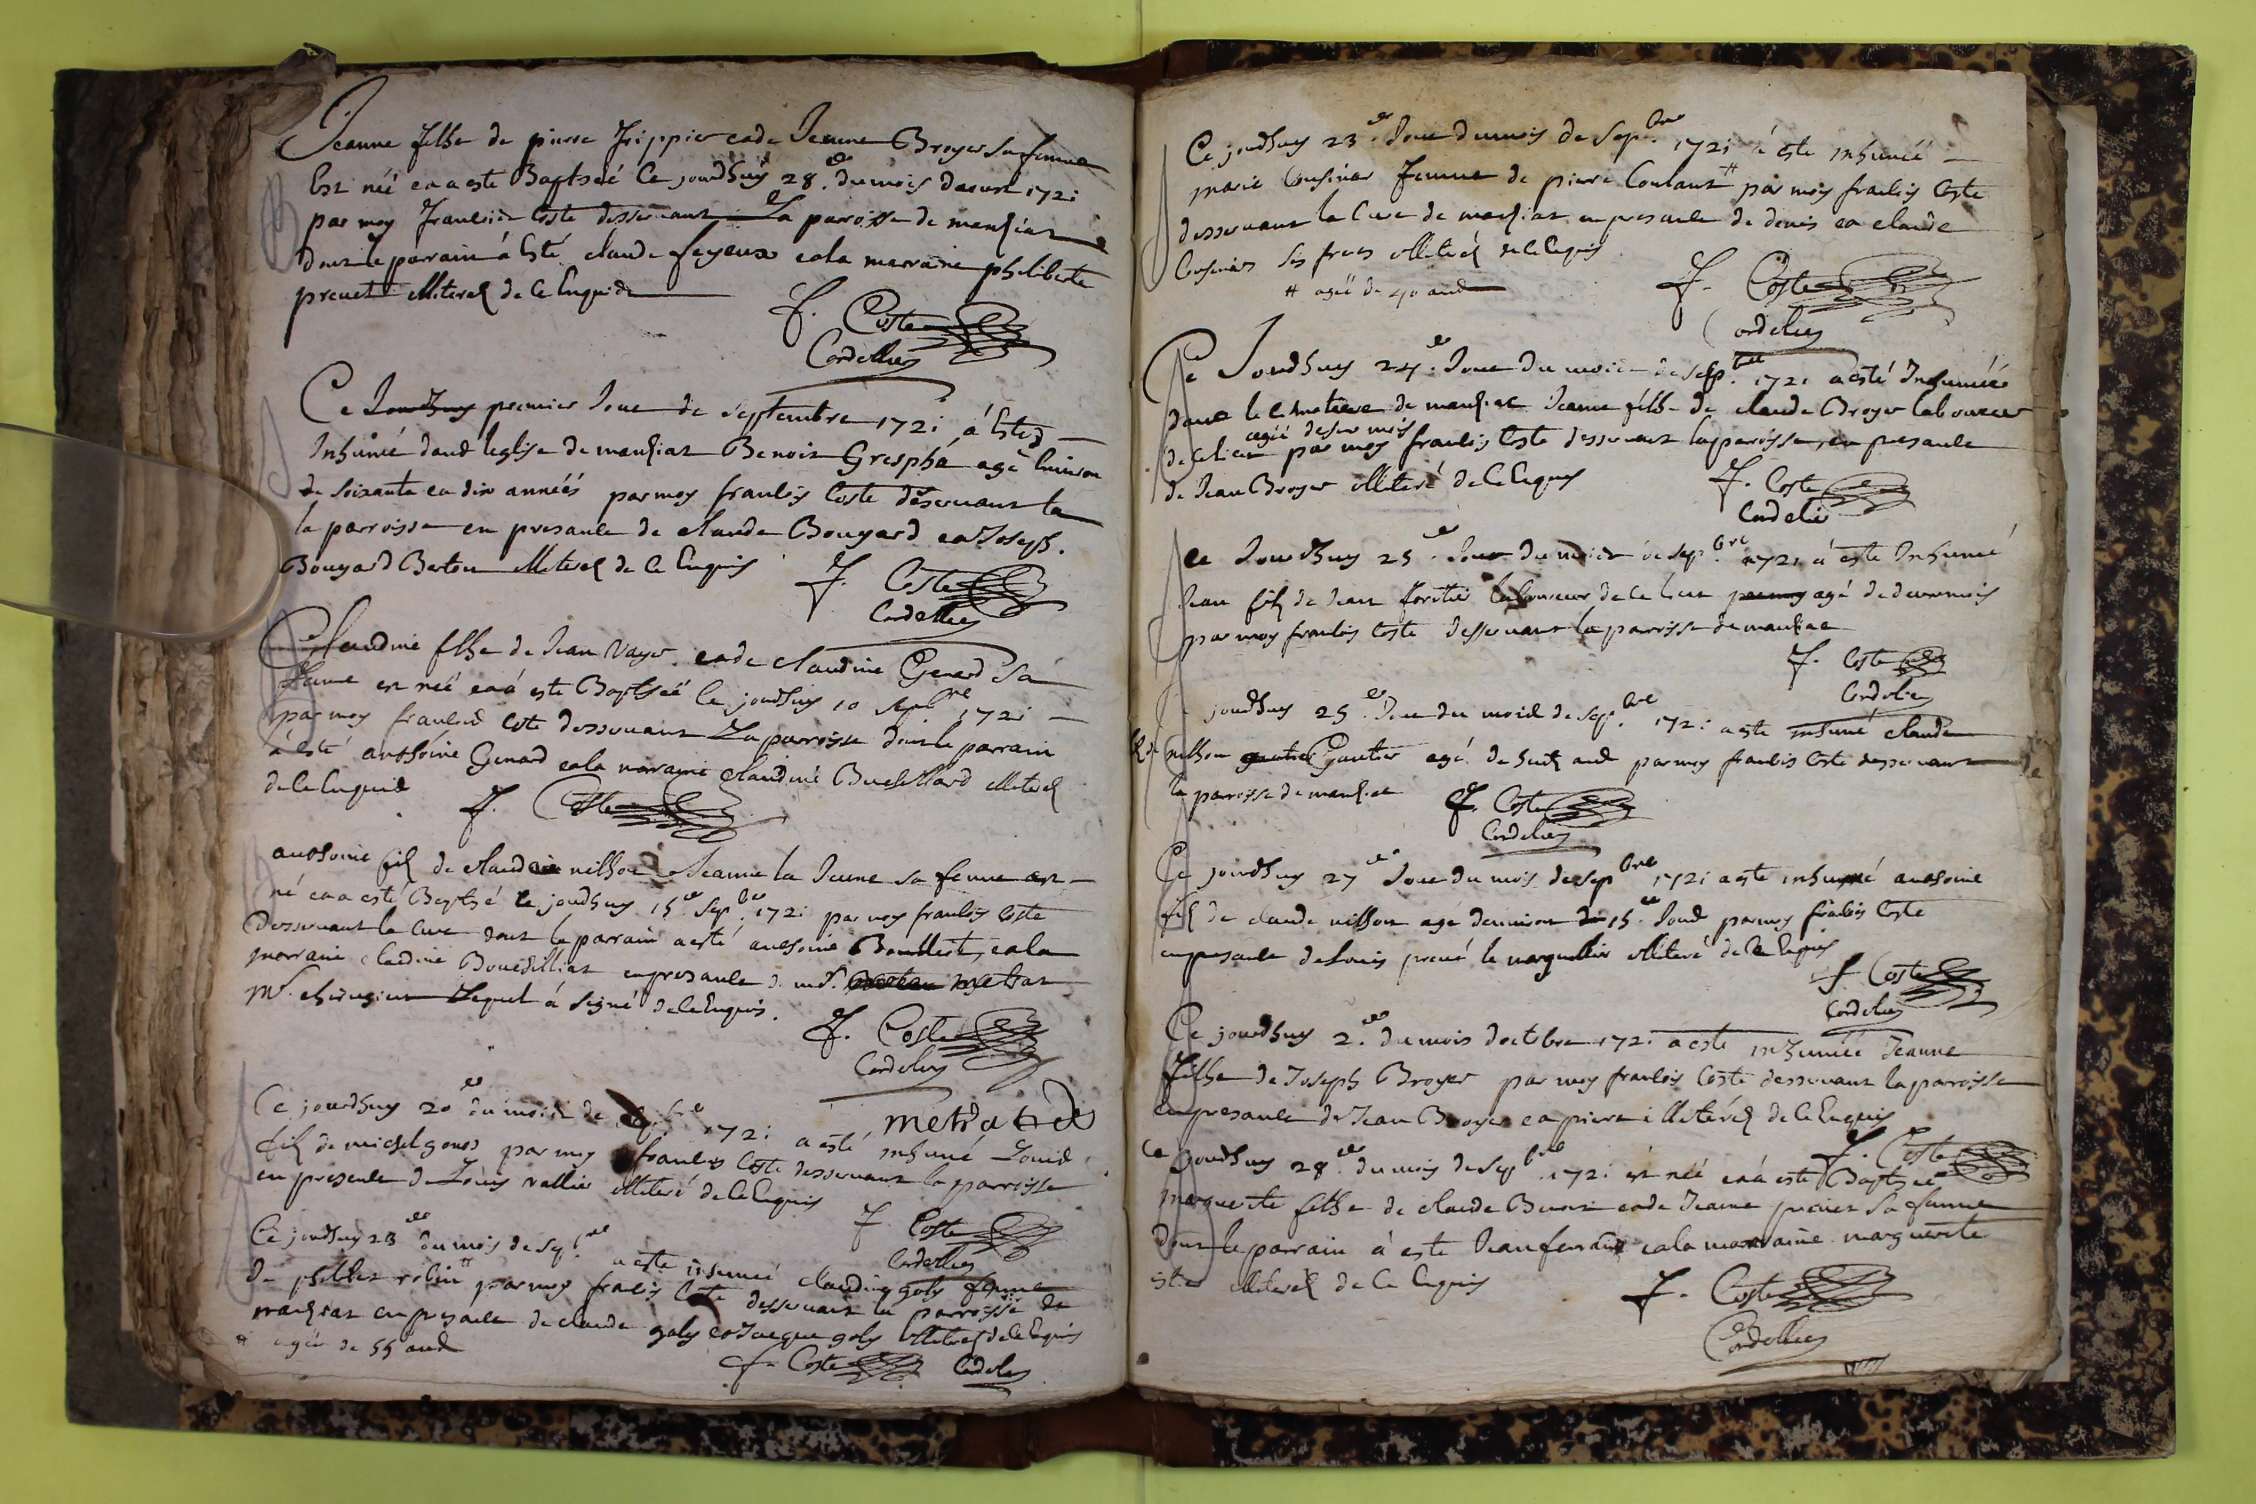 Jeanne fille de pierre frippier et de Jeanne Broyer sa femme
Est néé et a esté Baptséé Ce jourdhuy 28.e du mois daoust 1721
par moy francois Coste desservant La paroisse de manziat
dont le parrain á Esté claude feyeux et la marraine philiberte
prevet illiterez de Ce Enquis
f. Coste
Cordellier
Ce Jourdhuy premier Jour de Septembre 1721 á Esté
Inhumé dans leglise de manziat Benoit Grespha agé Environ
de soixante et dix annéés par moy francois Coste deservant la
la parroisse en presance de claude Bouyard et Joseph
Bouyard Berton illiterez de Ce Enquis
f. Coste
Cordellier
Claudine fille de Jean Vayer et de claudine Genard Sa
femme est néé et á esté Baptséé Ce jourdhuy 10 sepbre 1721
par moy francois Coste desservant La parroisse dont le parrain
á esté anthoine Genard et la marraine claudine Buchillard illiterez
de Ce Enquis
f. Coste
anthoine filz de claude nilhon Jeanne la Jeune sa femme est
né et a esté Baptsé le jourdhuy 15e Sepbre 1721 par moy francois Coste
Desservant la Cure dont le parrain a esté anthoine Boullist et la
marraine claudine Bouchilliat en presance d. mr. metrat
Mr. chirugien Lequel á signé de Ce Enquis.
f. Coste
Cordelier
metrat
Ce jourdhuy 20e du mois de sepbre 1721 a esté inhumé Louis
filz de michel gonod par moy francois Coste desservant la parroisse
en presence de Louis vallier illiteré de Ce Enquis
f. Coste
Cordellier
Ce jourdhuy 23e du mois de sepbre a esté inhumeé claudine goly femme
de philibert robin # par moy francois Coste desservant la parroisse de
manziat en presance de claude goly et Jacque goly illiterez de Ce Enquis
# agée de 55 ans
f. Coste Cordelier
Ce jourdhuy 23.e Jour du mois de Sepbre 1721 á este inhuméé
marie Cousinier femme de pierre Contant # par moy francois Coste
desservant la Cure de manziat en presance de denis et claude
Cousinier Ses freres illiterez de Ce Enquis
# ageé de 40 ans
f. Coste
Cordelier
Ce Jourdhuy 24.e Jour du mois de Sepbre 1721 a esté Inhuméé
dans le Cimetiere de manziat Jeanne fille de claude Broyer laboureur
ageé de six mois
de Ce lieu par moy francois Coste desservant la paroisse, en presance
de Jean Broyer illiteré de Ce Enquis
f. Coste
Cordelier
Ce Jourdhuy 25.e Jour du mois de Sepbre 1721 á esté Inhumé
Jean filz de Jean laboureur de Ce lieu agé de deux mois
par moy francois Coste desservant la parroisse de manziat
f. Coste
Cordelier
Ce jourdhuy 25.e Jour du mois de Sepbre 1721 a esté inhumé claude
nilhon Gautier agé de huit ans par moy francois Coste desservant
la parroisse de manziat
f. Coste
Cordelier
Ce jourdhuy 27e Jour du mois de Sepbre 1721 a esté inhumé anthoine
filz de claude nilhon agé denviron 15.e Jours par moy francois Coste
en presance de Louis prevé le marguillier illiteré de Ce Enquis
f. Coste
Cordelier
Ce jourdhuy 2.e du mois doctobre 1721 a esté inhuméé Jeanne
fille de Joseph Broyer par moy francois Coste desservant la parroisse
en presance de Jean Broyer et pierre illiterez de Ce Enquis
f. Coste
Ce jourdhuy 28.e du mois de Sepbre 1721 est néé et á esté Baptséé
marguerite fille de claude Benoit et de Jeanne prevet Sa femme
dont le parrain á esté Jean ferrain et la marraine marguerite
illiterez de Ce Enquis
f. Coste
Cordellier